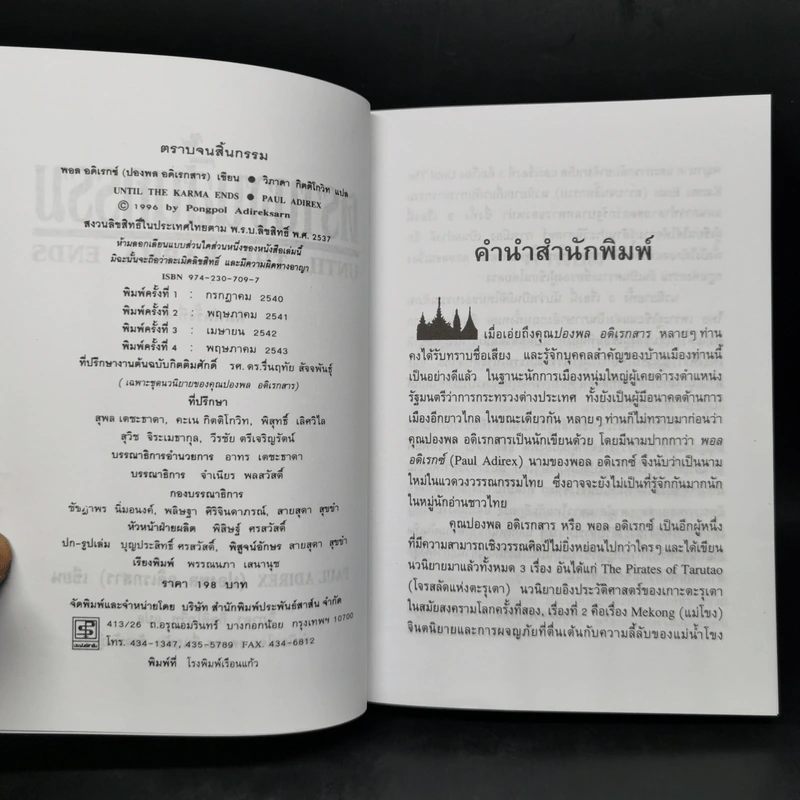 ตราบจนสิ้นกรรม
พอล อดิเรกซ์ (ปองพล อดิเรกสาร) เขียน ● วิภาดา กิตติโกวิท แปล
UNTIL THE KARMA ENDS ● PAUL ADIREX
© 1996 by Pongpol Adireksarn
สงวนลิขสิทธิ์ในประเทศไทยตาม พ.ร.บ.ลิขสิทธิ์ พ.ศ. 2537
ห้ามลอกเลียนแบบส่วนใดส่วนหนึ่งของหนังสือเล่มนี้
มิฉะนั้นจะถือว่าละเมิดลิขสิทธิ์ และมีความผิดทางอาญา
ISBN 974-230-709-7
พิมพ์ครั้งที่ 1 : กรกฎาคม 2540
พิมพ์ครั้งที่ 2 : พฤษภาคม 2541
พิมพ์ครั้งที่ 3 : เมษายน 2542
พิมพ์ครั้งที่ 4 : พฤษภาคม 2543
ที่ปรึกษางานต้นฉบับกิตติมศักดิ์ รศ.ดร.รื่นฤทัย สัจจพันธุ์
(เฉพาะชุดนวนิยายของคุณปองพล อดิเรกสาร)
ที่ปรึกษา
สุพล เตชะธาดา, คะเน กิตติโกวิท, พิสุทธิ์ เลิศวิไล
สุวิช จิระเมธากุล, วีรชัย ตรีเจริญรัตน์
บรรณาธิการอำนวยการ อาทร เตชะธาดา
บรรณาธิการ จำเนียร พลสวัสดิ์
กองบรรณาธิการ
ชัชฎาพร นิ่มอนงค์, พลิษฐา ศิริจินดาภรณ์, สายสุดา สุขขำ
หัวหน้าฝ่ายผลิต พิสิษฐ์ ศรสวัสดิ์
ปก-รูปเล่ม บุญประสิทธิ์ ศรสวัสดิ์, พิสูจน์อักษร สายสุดา สุขขำ
เรียงพิมพ์ พรรณนภา เสนานุช
ราคา 198 บาท
จัดพิมพ์และจำหน่ายโดย บริษัท สำนักพิมพ์ประพันธ์สาส์น จำกัด
413/26 ถ.อรุณอมรินทร์ บางกอกน้อย กรุงเทพฯ 10700
โทร. 434-1347, 435-5789 FAX. 434-6812
พิมพ์ที่ โรงพิมพ์เรือนแก้ว
คำนำสำนักพิมพ์
เมื่อเอ่ยถึงคุณปองพล อดิเรกสาร หลายๆ ท่าน
คงได้รับทราบชื่อเสียง และรู้จักบุคคลสำคัญของบ้านเมืองท่านนี้
เป็นอย่างดีแล้ว ในฐานะนักการเมืองหนุ่มใหญ่ผู้เคยดำรงตำแหน่ง
รัฐมนตรีว่าการกระทรวงต่างประเทศ ทั้งยังเป็นผู้มีอนาคตด้านการ
เมืองอีกยาวไกล ในขณะเดียวกัน หลายๆ ท่านก็ไม่ทราบมาก่อนว่า
คุณปองพล อดิเรกสารเป็นนักเขียนด้วย โดยมีนามปากกาว่า พอล
อดิเรกซ์ (Paul Adirex) นามของพอล อดิเรกซ์ จึงนับว่าเป็นนาม
ใหม่ในแวดวงวรรณกรรมไทย ซึ่งอาจจะยังไม่เป็นที่รู้จักกันมากนัก
ในหมู่นักอ่านชาวไทย
คุณปองพล อดิเรกสาร หรือ พอล อดิเรกซ์ เป็นอีกผู้หนึ่ง
ที่มีความสามารถเชิงวรรณศิลป์ไม่ยิ่งหย่อนไปกว่าใครๆ และได้เขียน
นวนิยายมาแล้วทั้งหมด 3 เรื่อง อันได้แก่ The Pirates of Tarutao
(โจรสลัดแห่งตะรุเตา) นวนิยายอิงประวัติศาสตร์ของเกาะตะรุเตา
ในสมัยสงครามโลกครั้งที่สอง, เรื่องที่ 2 คือเรื่อง Mekong (แม่โขง)
จินตนิยายและการผจญภัยที่ตื่นเต้นกับความลี้ลับของแม่น้ำโขง